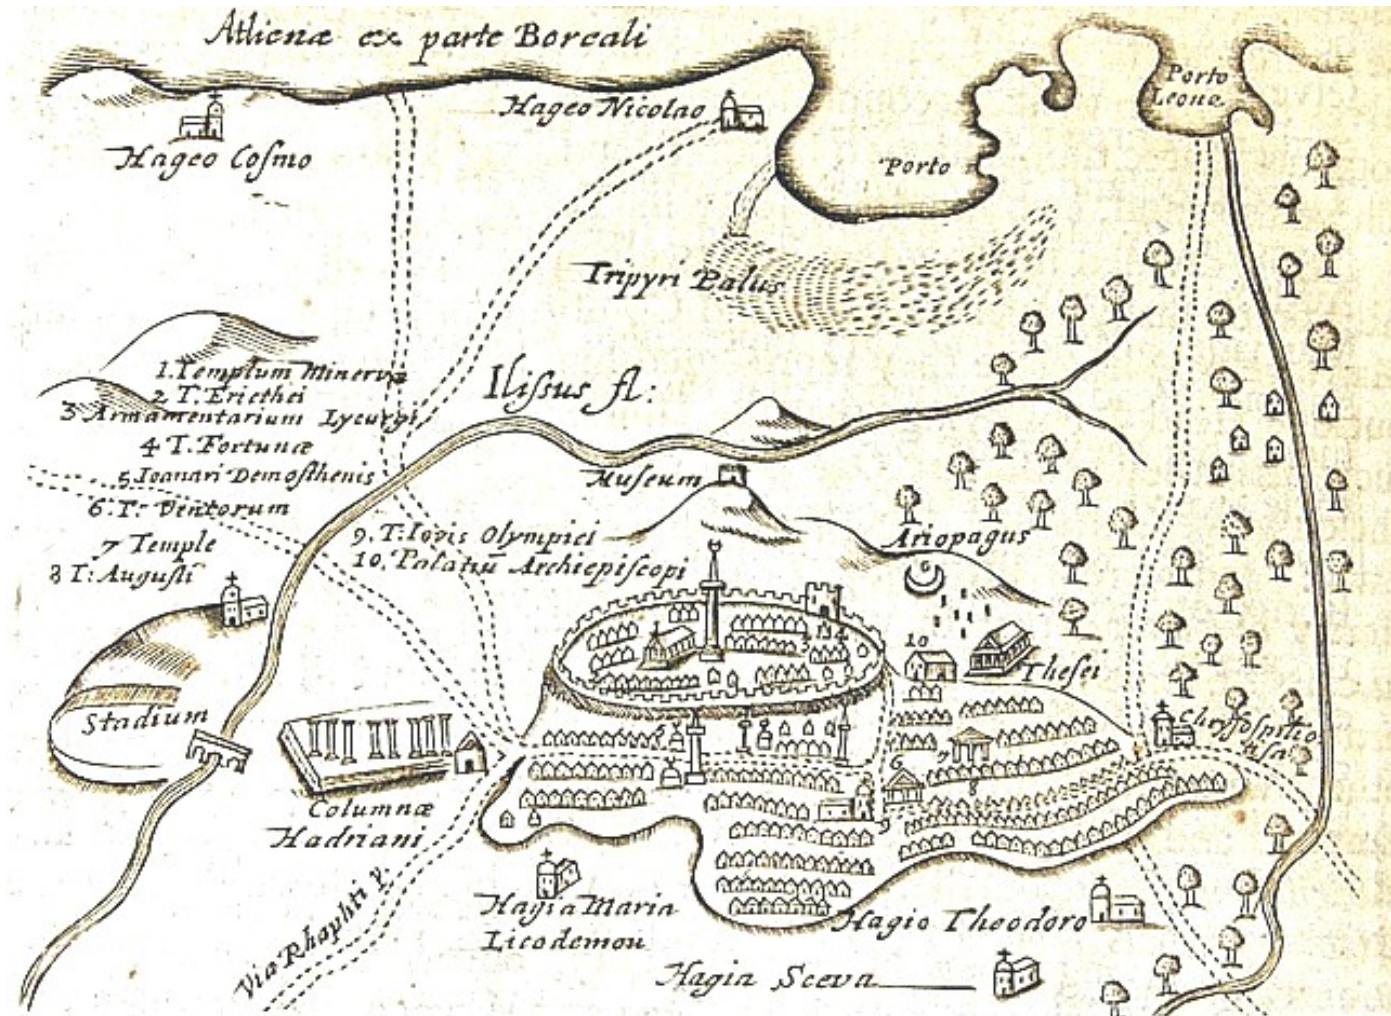 Athenæ ex parte Boreali
Porto
Leone
Hageo Nicolao
Hageo Cosmo
Porto
Tripyri Palus
1. Templum Minervæ
2 T. Eriethei
3 Armamentarium Lycurgi
4 T. Fortunæ
5 Ioanari Demosthenis
6. T. Ventorum
7 Temple
8 T: Augusti
Ilissus fl:
Museum
9. T: Iovis Olympici
10. Palatiũ Archiepiscopi
Ariopagus
10
Thesei
Stadium
Columnæ
Hadriani
6
7
8
Via Rhaphti
Hagia Maria
Licodemou
Hagio Theodoro
Hagia Sceva